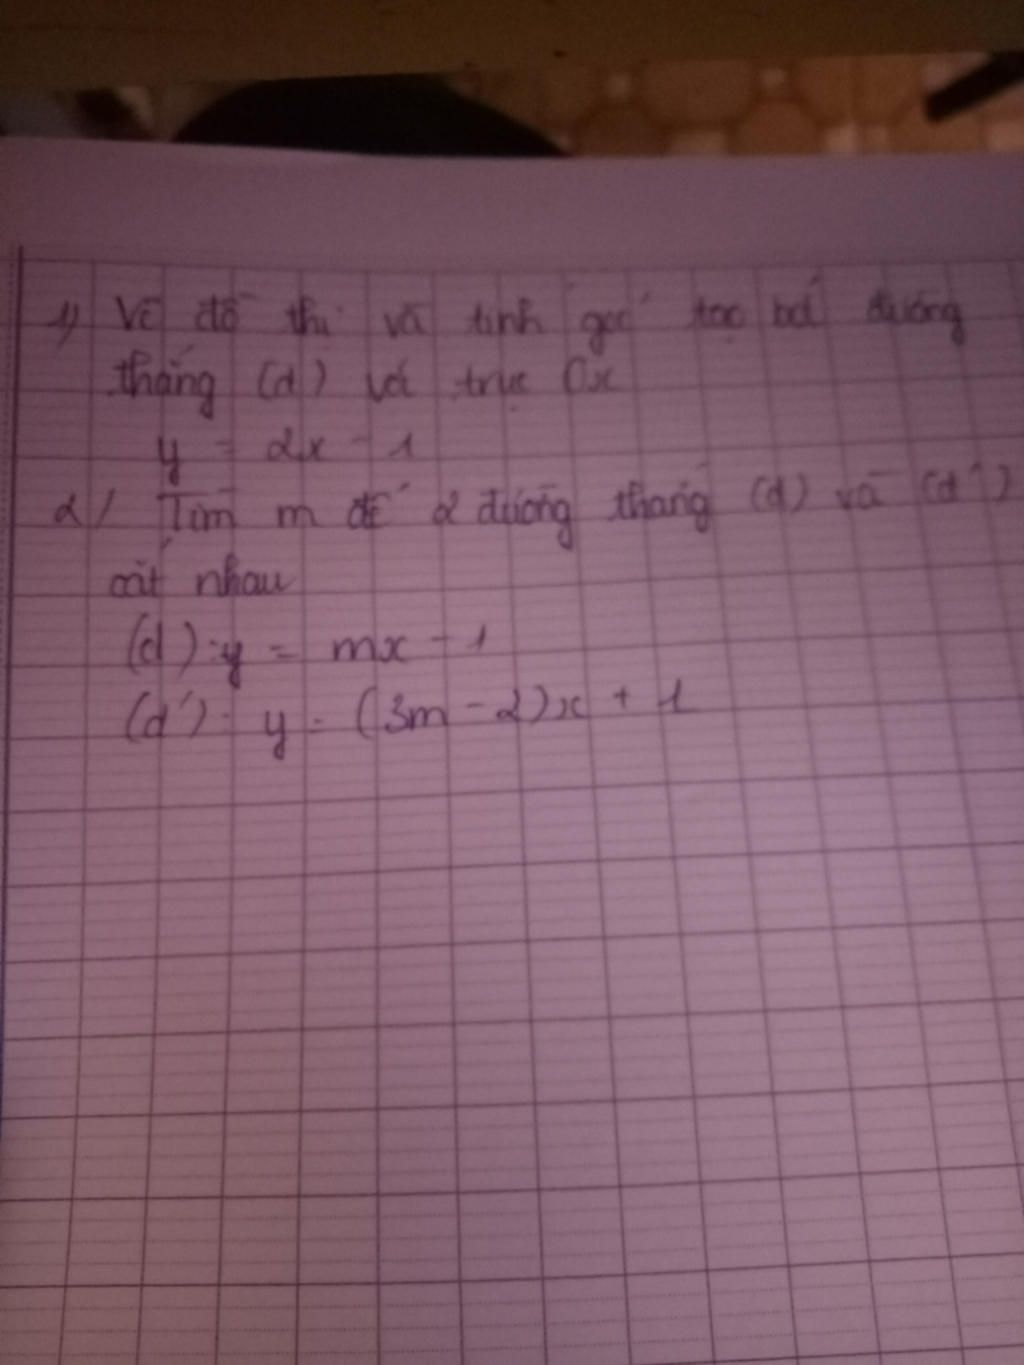 1) Vẽ đồ thị và tính góc tạo bởi đường
thẳng (d) với trục Ox
y = 2x - 1
2) Tìm m để 2 đường thẳng (d) và (d')
cắt nhau
(d): y = mx - 1
(d'): y = (3m - 2)x + 1